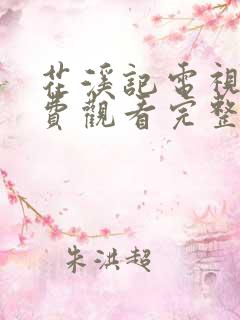 茌溪記電視
費觀看完整
朱洪超